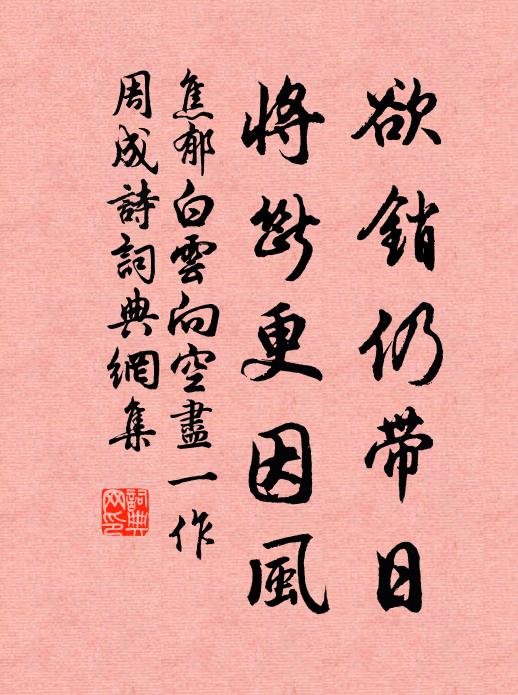 欲銷仍帶日
將斷更因風
焦郁白雲向空盡一作
周成詩詞典網集
詞典网印